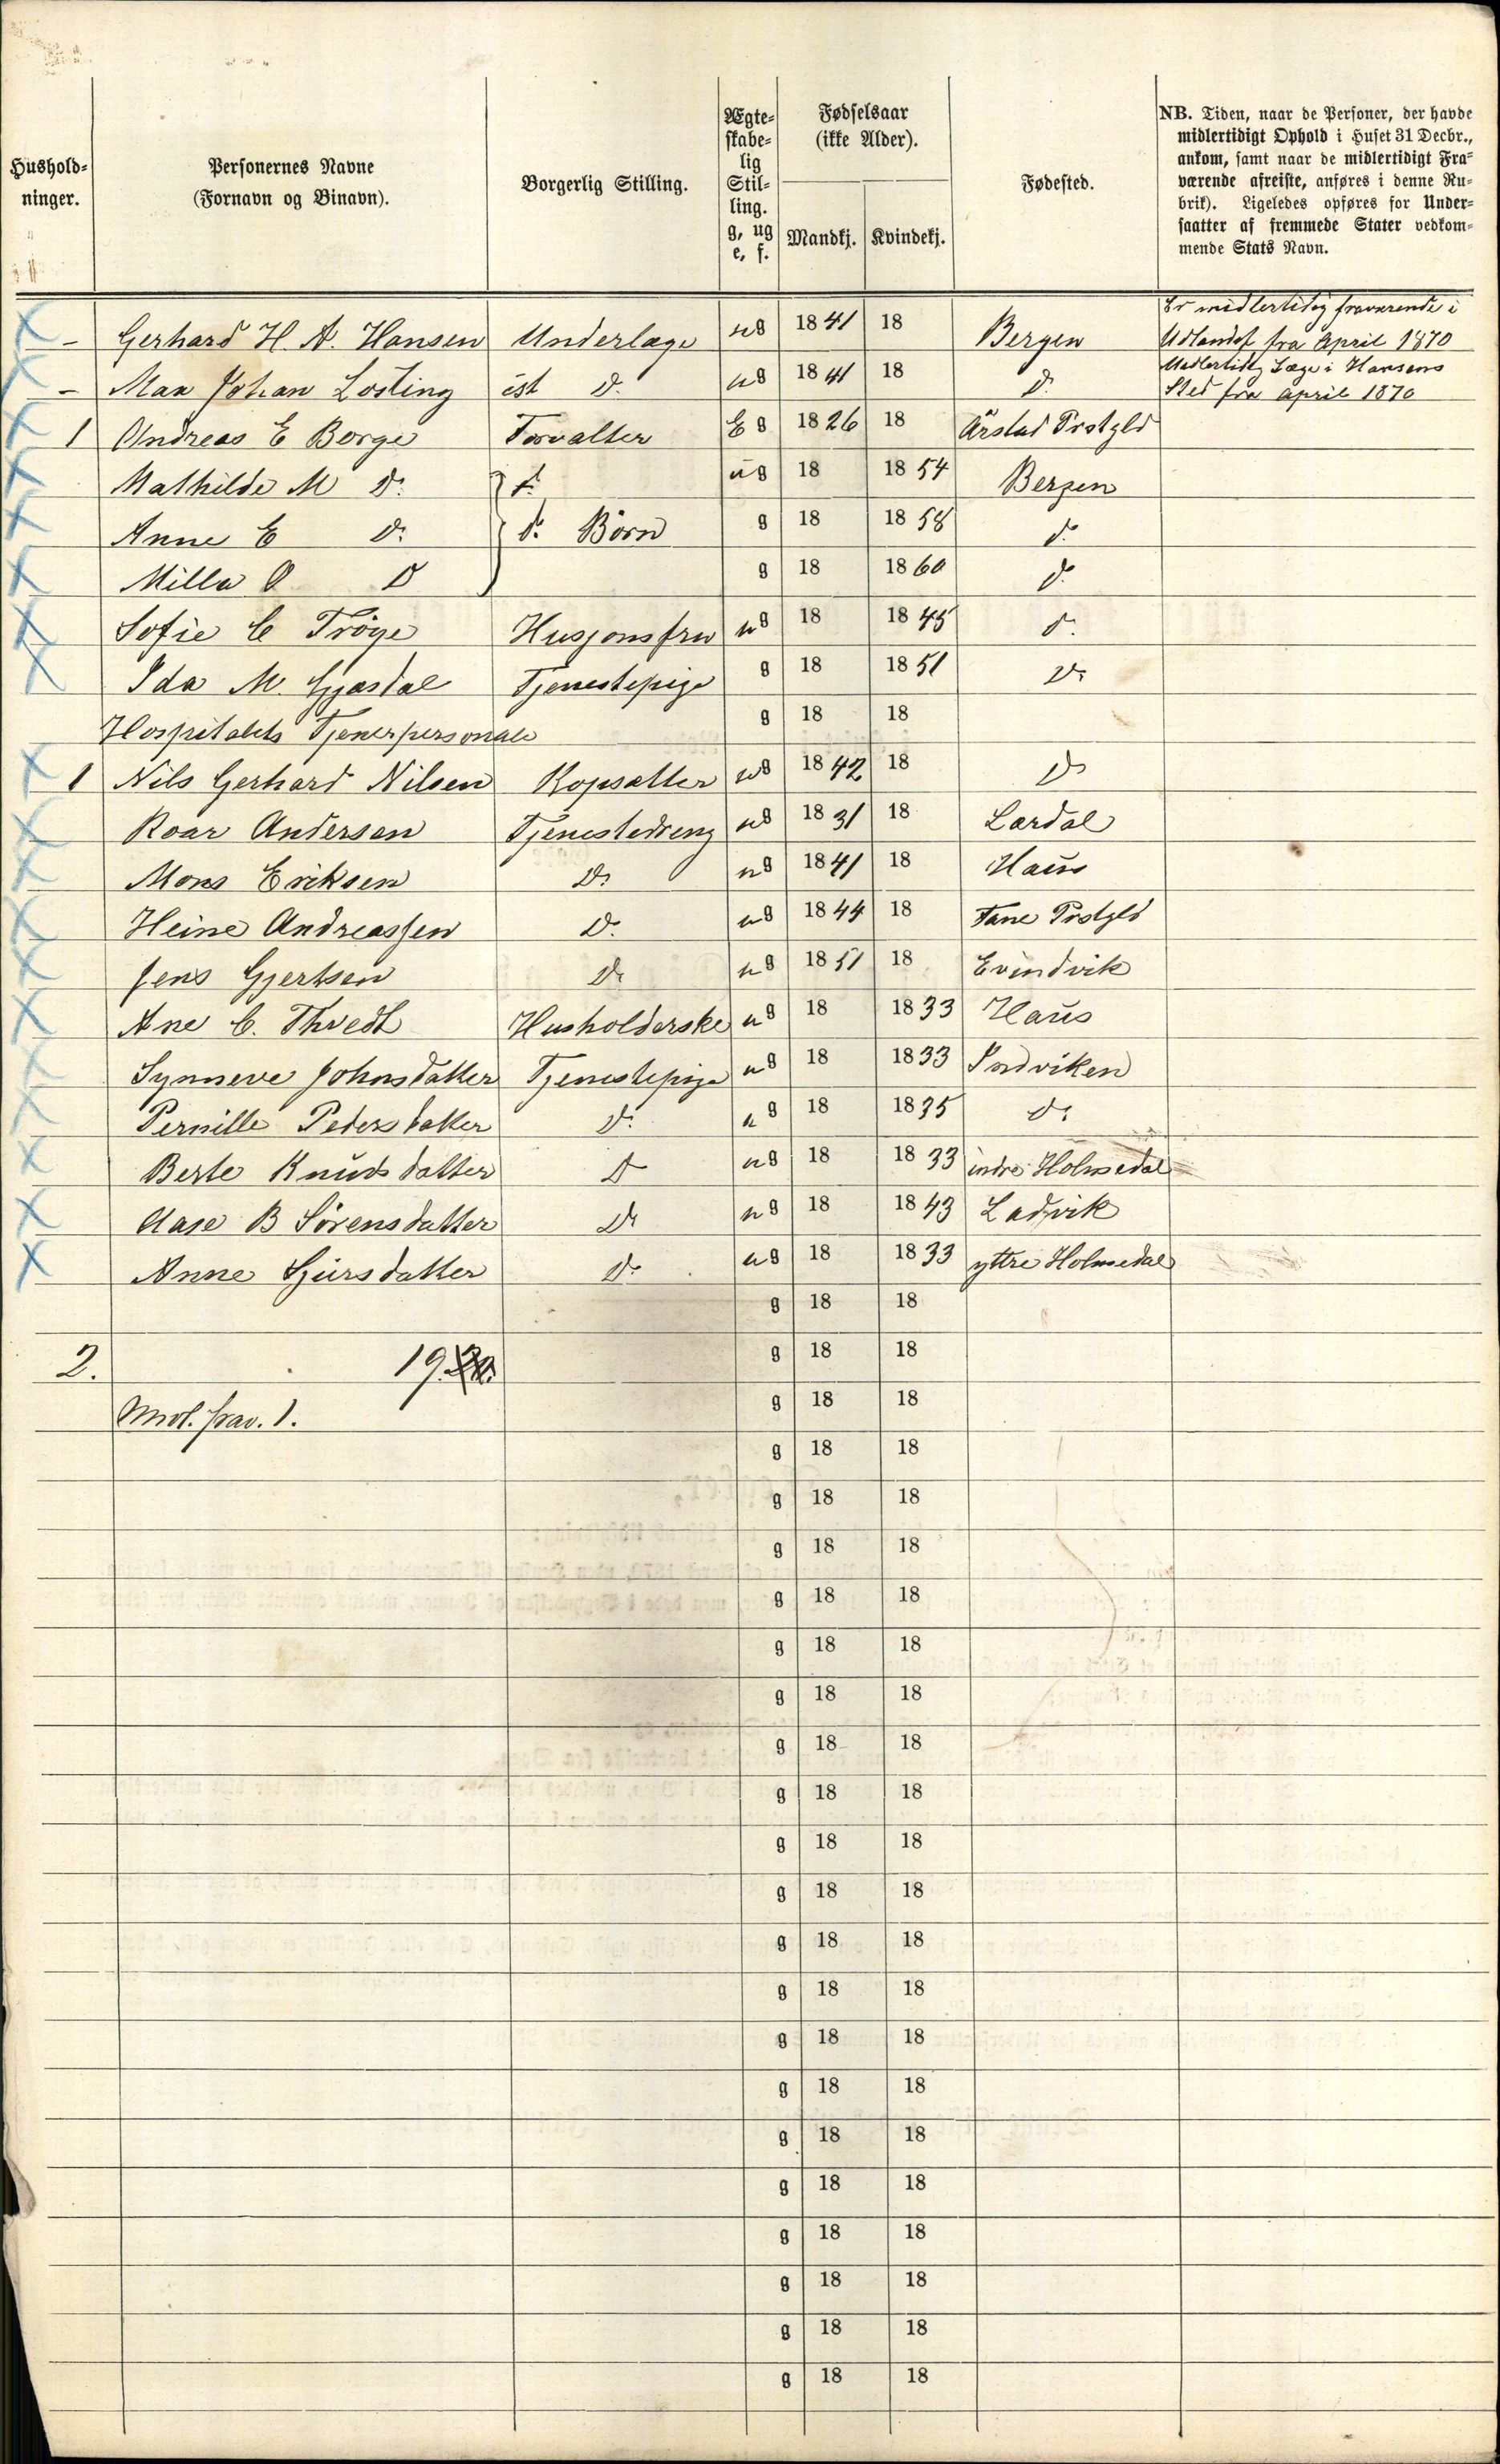 Hushold-
ninger.
Personernes Navne
(Fornavn og Binavn).
Borgerlig Stilling.
Ægte-
skabe-
lig
Stil-
ling.
g, ug
e, f.
Fødselsaar
(ikke Alder).
Mandkj. Kvindekj.
Fødested.
NB. Tiden, naar de Personer, der havde
midlertidigt Ophold i Huset 31 Decbr.,
ankom, samt naar de midlertidigt Fra-
værende afreiste, anføres i denne Ru-
brik). Ligeledes opføres for Under-
saatter af fremmede Stater vedkom-
mende Stats Navn.
Er midlertidig fraværende i
– Gerhard H. A. Hansen Underlæge ug 1841 18 Bergen Udlandet fra April 1870
Midlertidig Læge i Hansens
– Max Johan Losting ist D. ug 1841 18 D. Sted fra april 1870
1 Andreas E Borge Forvalter E g 1826 18 Årstad Prstgld
Mathilde M D. d. ug 18 1854 Bergen
Anne E D. d. Börn g 18 1858 d.
Milla O D g 18 1860 d.
Sofie C Tröye Husjomfru ug 18 1845 d.
Ida M. Gjasdal Tjenestepige g 18 1851 D.
Hospitalets Tjenerpersonale g 18 18
1 Nils Gerhard Nilsen Kopsætter ug 1842 18 D
Roar Andersen Tjenestedreng ug 1831 18 Lærdal
Mons Eriksen D. ug 1841 18 Haus
Heine Andreassen D. ug 1844 18 Fane Prstgld
Jens Gjertsen D. ug 1851 18 Evindvik
Ane C. Thvedt Husholderske ug 18 1833 Haus
Synneve Johnsdatter Tjenestepige ug 18 1833 Indviken
Pernille Pedersdatter D. ug 18 1835 D.
Berte Knudsdatter D ug 18 1833 indre Holmedal
Aase B Sörensdatter D ug 18 1843 Ladvik
Anne Sjursdatter D. ug 18 1833 yttre Holmedal
g 18 18
2. 19. g 18 18
Mdl. frav. 1. g 18 18
g 18 18
g 18 18
g 18 18
g 18 18
g 18 18
g 18 18
g 18 18
g 18 18
g 18 18
g 18 18
g 18 18
g 18 18
g 18 18
g 18 18
g 18 18
g 18 18
g 18 18
g 18 18
g 18 18
g 18 18